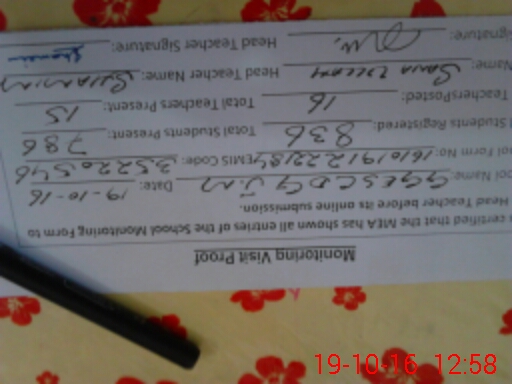 Monitoring Visit Proof
certified that the MEA has shown all entries of the School Monitoring Form to
Head Teacher before its online submission.
ool Name: GGESCDG J.M Date: 19-10-16
ol Form No: EMIS Code: 35220546
Students Registered: 836 Total Students Present: 786
Teachers Posted: 16 Total Teachers Present: 15
Name: Head Teacher Name:
ignature: Head Teacher Signature:
19-10-16 12:58